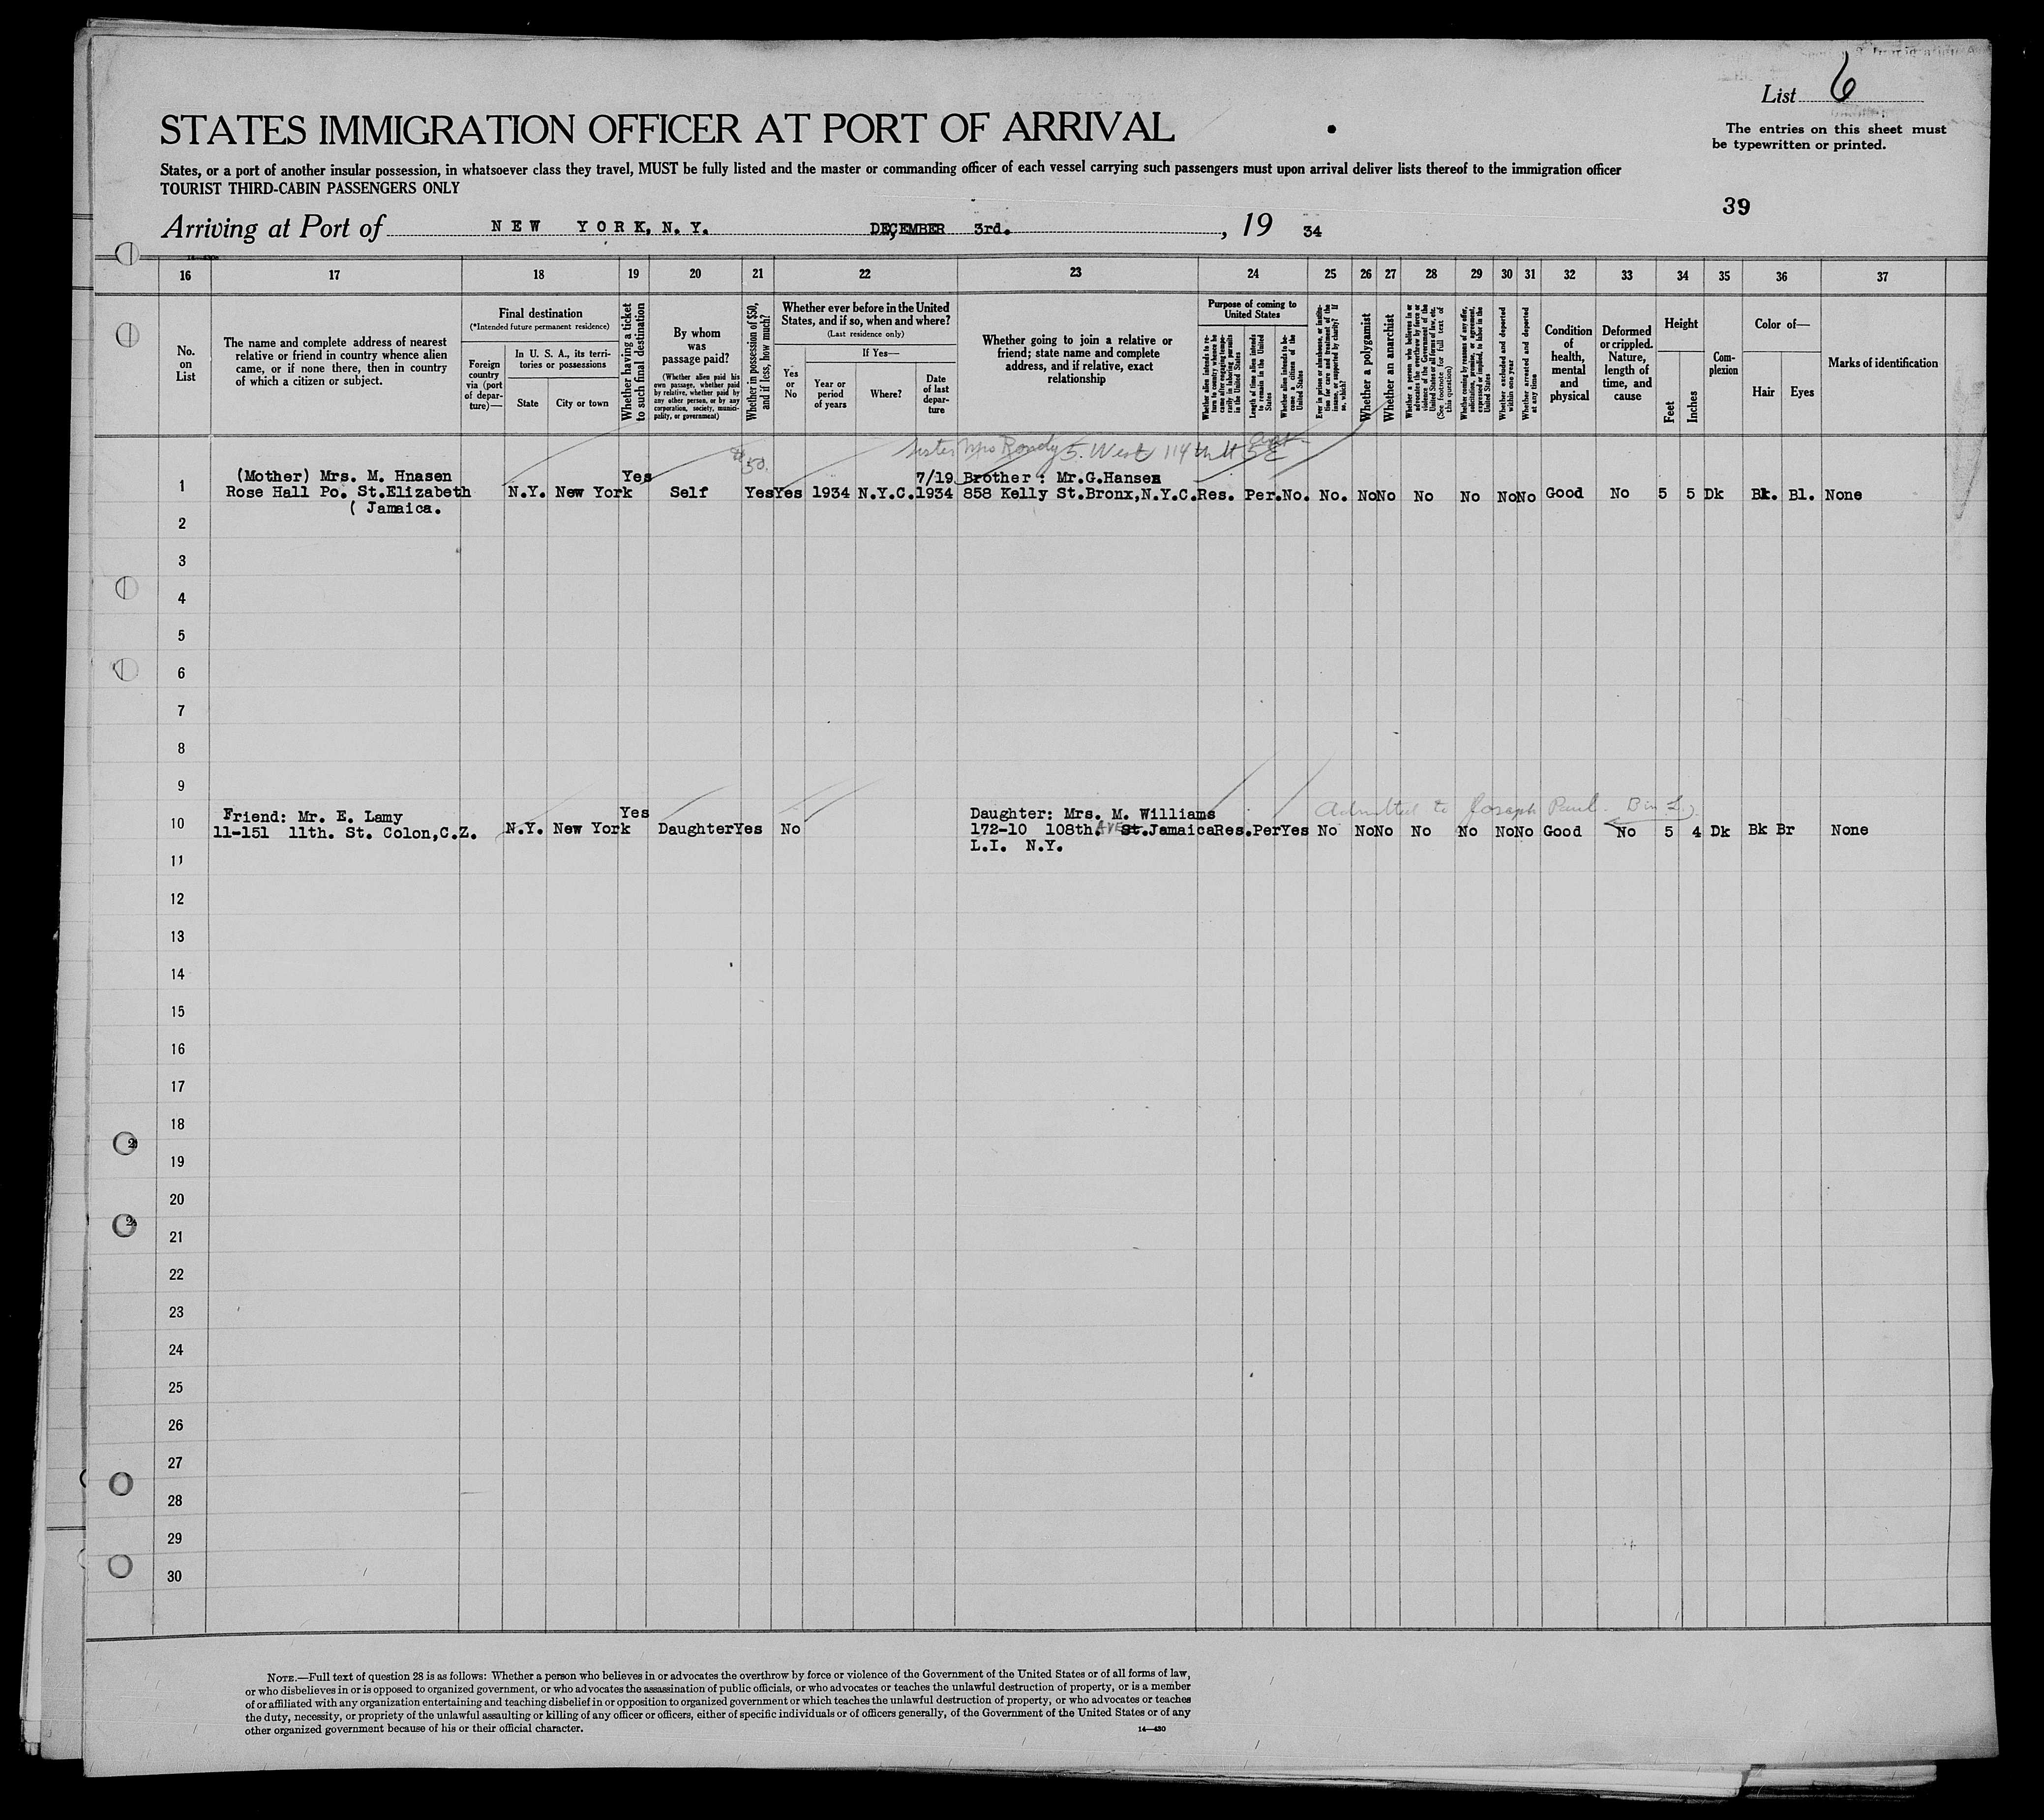 List 6
STATES IMMIGRATION OFFICER AT PORT OF ARRIVAL
The entries on this sheet must
be typewritten or printed.
States, or a port of another insular possession, in whatsoever class they travel, MUST be fully listed and the master or commanding officer of each vessel carrying such passengers must upon arrival deliver lists thereof to the immigration officer
TOURIST THIRD-CABIN PASSENGERS ONLY
39
Arriving at Port of NEW YORK, N. Y. DECEMBER 3rd. , 19 34
16 17 18 19 20 21 22 23 24 25 26 27 28 29 30 31 32 33 34 35 36 37
No.
on
List
The name and complete address of nearest
relative or friend in country whence alien
came, or if none there, then in country
of which a citizen or subject.
Final destination
(*Intended future permanent residence)
Foreign
country
via (port
of depar-
ture)—
In U. S. A., its terri-
tories or possessions
State
City or town
Whether having a ticket
to such final destination
By whom
was
passage paid?
(Whether alien paid his
own passage, whether paid
by relative, whether paid by
any other person, or by any
corporation, society, munici-
pality, or government)
Whether in possession of $50,
and if less, how much?
Whether ever before in the United
States, and if so, when and where?
(Last residence only)
Yes
or
No
If Yes—
Year or
period
of years
Where?
Date
of last
depar-
ture
Whether going to join a relative or
friend; state name and complete
address, and if relative, exact
relationship
Purpose of coming to
United States
Whether alien intends to re-
turn to country whence he
came after engaging tempo-
rarily in laboring pursuits
in the United States
Length of time alien intends
to remain in the United
States
Whether alien intends to be-
come a citizen of the
United States
Ever in prison or almshouse, or institu-
tion for care and treatment of the
insane, or supported by charity? If
so, which?
Whether a polygamist
Whether an anarchist
Whether a person who believes in or
advocates the overthrow by force or
violence of the Government of the
United States or all forms of law, etc.
(See footnote for full text of
this question)
Whether coming by reasons of any offer,
solicitation, promise, or agreement,
expressed or implied, to labor in the
United States
Whether excluded and deported
within one year
Whether arrested and deported
at any time
Condition
of
health,
mental
and
physical
Deformed
or crippled.
Nature,
length of
time, and
cause
Height
Feet
Inches
Com-
plexion
Color of—
Hair
Eyes
Marks of identification
$50. Sister Mrs 5. West 114th St
(Mother) Mrs. M. Hnasen Yes 7/19 Brother: Mr.G.Hansen
1 Rose Hall Po. St.Elizabeth N.Y. New York Self Yes Yes 1934 N.Y.C. 1934 858 Kelly St.Bronx,N.Y.C. Res. Per. No. No. No No No No No No Good No 5 5 Dk Bk. Bl. None
( Jamaica.
2
3
4
5
6
7
8
9
Friend: Mr. E. Lamy Yes Daughter: Mrs. M. Williams Admitted to Joseph Paul
10 11-151 11th. St. Colon,C.Z. N.Y. New York Daughter Yes No 172-10 108th. AVE St. Jamaica Res. Per Yes No No No No No No No Good No 5 4 Dk Bk Br None
L.I. N.Y.
11
12
13
14
15
16
17
18
19
20
21
22
23
24
25
26
27
28
29
30
NOTE.—Full text of question 28 is as follows: Whether a person who believes in or advocates the overthrow by force or violence of the Government of the United States or of all forms of law,
or who disbelieves in or is opposed to organized government, or who advocates the assassination of public officials, or who advocates or teaches the unlawful destruction of property, or is a member
of or affiliated with any organization entertaining and teaching disbelief in or opposition to organized government or which teaches the unlawful destruction of property, or who advocates or teaches
the duty, necessity, or propriety of the unlawful assaulting or killing of any officer or officers, either of specific individuals or of officers generally, of the Government of the United States or of any
other organized government because of his or their official character.
14—430